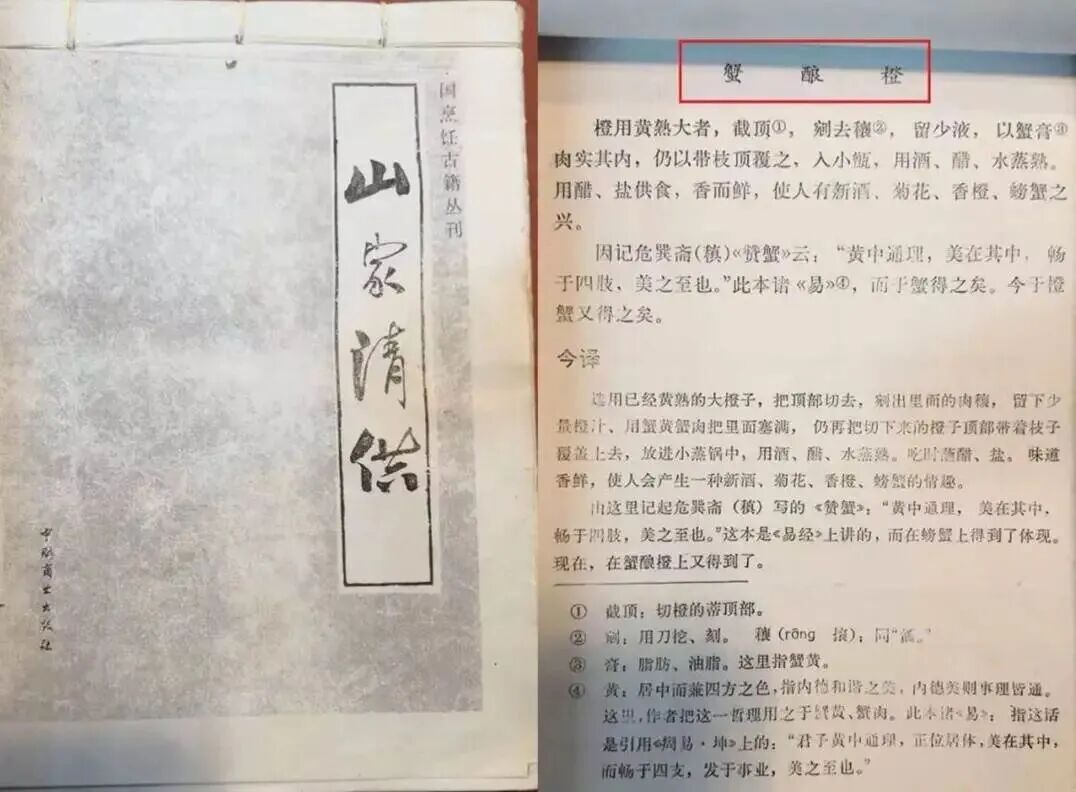 国烹饪古籍丛刊
山家清供
中国商业出版社
蟹酿橙
橙用黄熟大者，截顶①，剜去穰②，留少液，以蟹膏③
肉实其内，仍以带枝顶覆之，入小甑，用酒、醋、水蒸熟。
用醋、盐供食，香而鲜，使人有新酒、菊花、香橙、螃蟹之
兴。
因记危巽斋(稹)《赞蟹》云：“黄中通理，美在其中，畅
于四肢，美之至也。”此本诸《易》④，而于蟹得之矣。今于橙
蟹又得之矣。
今译
选用已经黄熟的大橙子，把顶部切去，剜出里面的肉穰，留下少
量橙汁、用蟹黄蟹肉把里面塞满，仍再把切下来的橙子顶部带着枝子
覆盖上去，放进小蒸锅中，用酒、醋、水蒸熟。吃时蘸醋、盐。味道
香鲜，使人会产生一种新酒、菊花、香橙、螃蟹的情趣。
由这里记起危巽斋（稹）写的《赞蟹》：“黄中通理，美在其中，
畅于四肢，美之至也。”这本是《易经》上讲的，而在螃蟹上得到了体现。
现在，在蟹酿橙上又得到了。
① 截顶：切橙的蒂顶部。
② 剜：用刀挖、刻。 穰(rōng 攘)：同“瓤。”
③ 膏：脂肪、油脂。这里指蟹黄。
④ 黄：居中而兼四方之色，指内德和谐之美，内德美则事理皆通。
这里，作者把这一哲理用之于蟹黄、蟹肉。此本诸《易》：指这话
是引用《周易·坤》上的：“君子黄中通理，正位居体，美在其中，
而畅于四支，发于事业，美之至也。”